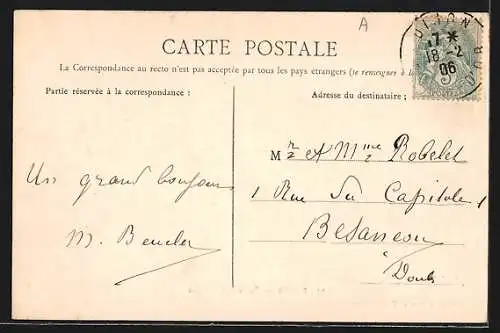 A
CARTE POSTALE
La Correspondance au recto n'est pas acceptée par tous les pays étrangers (se renseigner à l
Partie réservée à la correspondance :
Adresse du destinataire :
DIJON
17 *
18-2
06
CÔTE D'OR
5
POSTES
Mr et Mme Robelet
1 Rue du Capitole 1
Besancon
Doubs
Un grand bonjour
M.